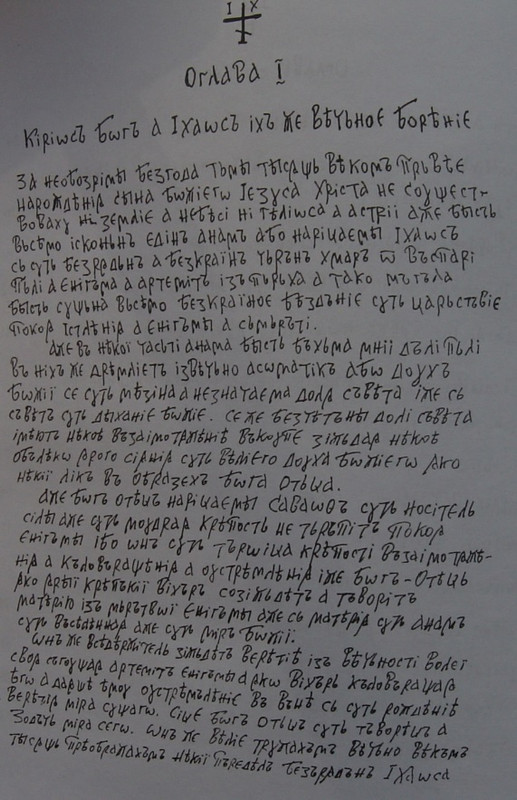 І Х
Оглава I
Кіріωсъ Богъ а Іхаωсъ іхъ же вѣчьноє борѣніє
За необозрімы безгода тьмы тысящь вѣкомъ прьвѣє
нарождѣнія сына божієгω Іезуса Хріста не соущест-
воваху ні земліє а небѣсі ні тѣліωса а астріі аже бысть
вьсѣмо ісконьнъ єдінъ анамъ або наріцаємы Іхаωсъ
сь суть безрядьнъ а безкраїнъ чьрънъ хмаръ ѿ въспарі
пълі а єнігъма а артемітъ ізъ пърьха а тако мъгъла
бысть сущьна вьсѣмо безкраїноє бѣздъніє суть царьствіє
покоя істлѣнія а єнігъмы а съмьръті.
аже въ нѣкоі часьті анама бысть бѣхъма мніі дълі пълі
в ніхъ же дрѣмлієтъ ізвѣчьно асωматікъ абω доухъ
божіі се суть мѣзіна а незначаєма доля съвѣта іже сь
съвѣтъ суть дыханіє божіє. се же безчѣтъны долі съвѣта
імѣютъ нѣкоє възаімотяжѣніє въкоупѣ зіждяя нѣкоє
объліко ярого сіянія суть вѣлієго доуха божієгω яко
нѣкіі лікъ в обѣразехъ бога отьца.
аже богъ отьць наріцаємы саваωѳъ суть носітєль
сілы аже суть моудрая крѣпость не търъпітъ покоя
єнігъмы ібо ωнъ суть търωіца крѣпості възаімотяжѣ-
нія а къловъращѣнія а оустрѣмлѣнія іже богъ-отьць
яко ярєіі крѣпъкіі віхъръ созіждѣтъ а творітъ
матѣрію ізъ мьрътвωі єнігъмы аже сь матѣрія суть анамъ
суть вьсѣлѣнная аже суть міръ божіі.
ωнъ же вьсѣдѣржітель зіждѣтъ верѣтіє ізъ вѣчьності волєі
своя съгоущая артемітъ єнігъмы а якω віхъръ къловъращая
єгω а даряще ємоу оустрѣмлѣніє въ вънѣ сь суть рождѣніє
верѣтія міра сущаго. сіце богъ отьць суть творѣць а
зодчь міра сєго. ωнъ же вѣліє труждахъмъ вѣчьно вѣкъмъ
тысящь прѣображахъмъ нѣкіі прѣдѣлъ безърядьнъ Іхаωса